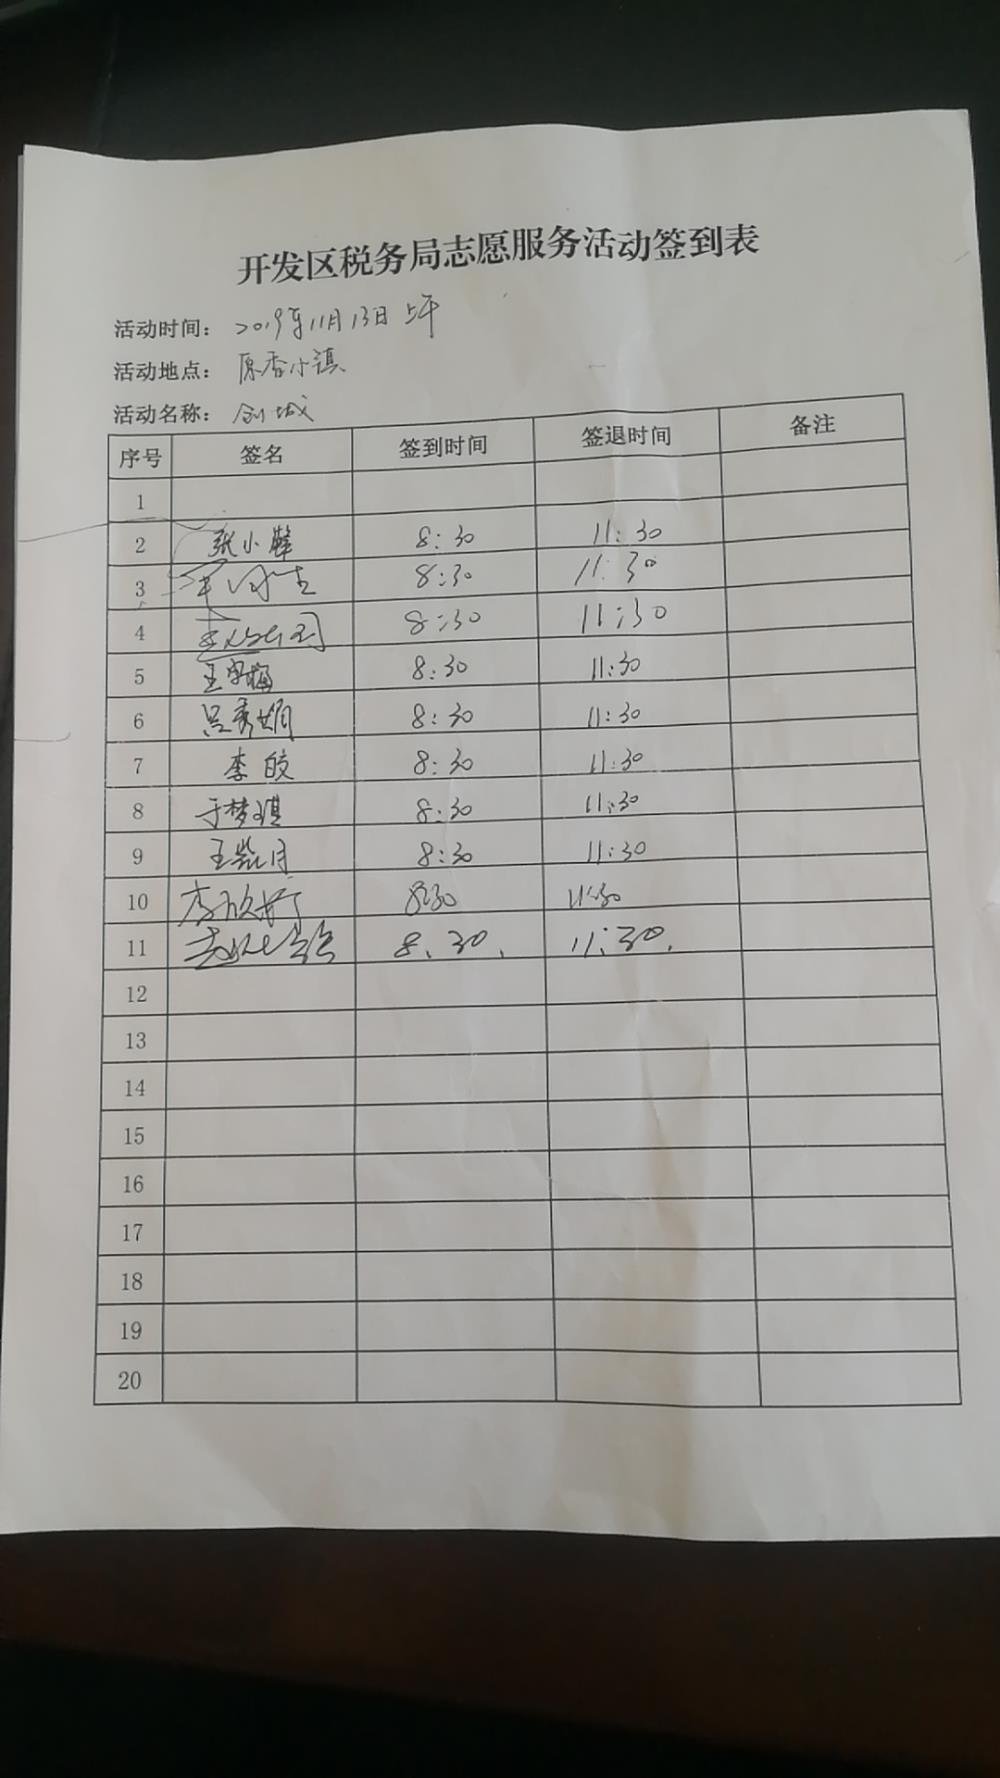 开发区税务局志愿服务活动签到表
活动时间： 2019年11月13日 上午
活动地点： 原香小镇
活动名称： 创城
序号 签名 签到时间 签退时间 备注
1
2 张小 8:30 11:30
3 8:30 11:30
4 8:30 11:30
5 王 8:30 11:30
6 吕秀娟 8:30 11:30
7 李皎 8:30 11:30
8 于梦琪 8:30 11:30
9 王 月 8:30 11:30
10 李欣 8:30 11:30
11 8:30 11:30
12
13
14
15
16
17
18
19
20